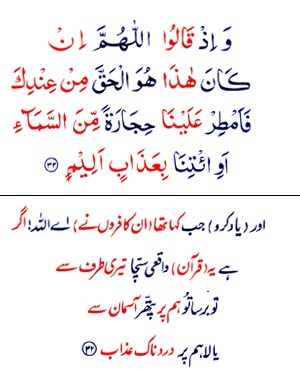 وَ اِذْ قَالُوا اللّٰهُمَّ اِنْ
كَانَ هٰذَا هُوَ الْحَقَّ مِنْ عِنْدِكَ
فَاَمْطِرْ عَلَيْنَا حِجَارَةً مِّنَ السَّمَآءِ
اَوِ ائْتِنَا بِعَذَابٍ اَلِيْمٍ ۝۳۲
اور (یاد کرو) جب کہا تھا (ان کافروں نے) اے اللہ! اگر
ہے یہ (قرآن) واقعی سچّا تیری طرف سے
تو برسا تُو ہم پر پتھّر آسمان سے
یا لا ہم پر دردناک عذاب ۝۳۲